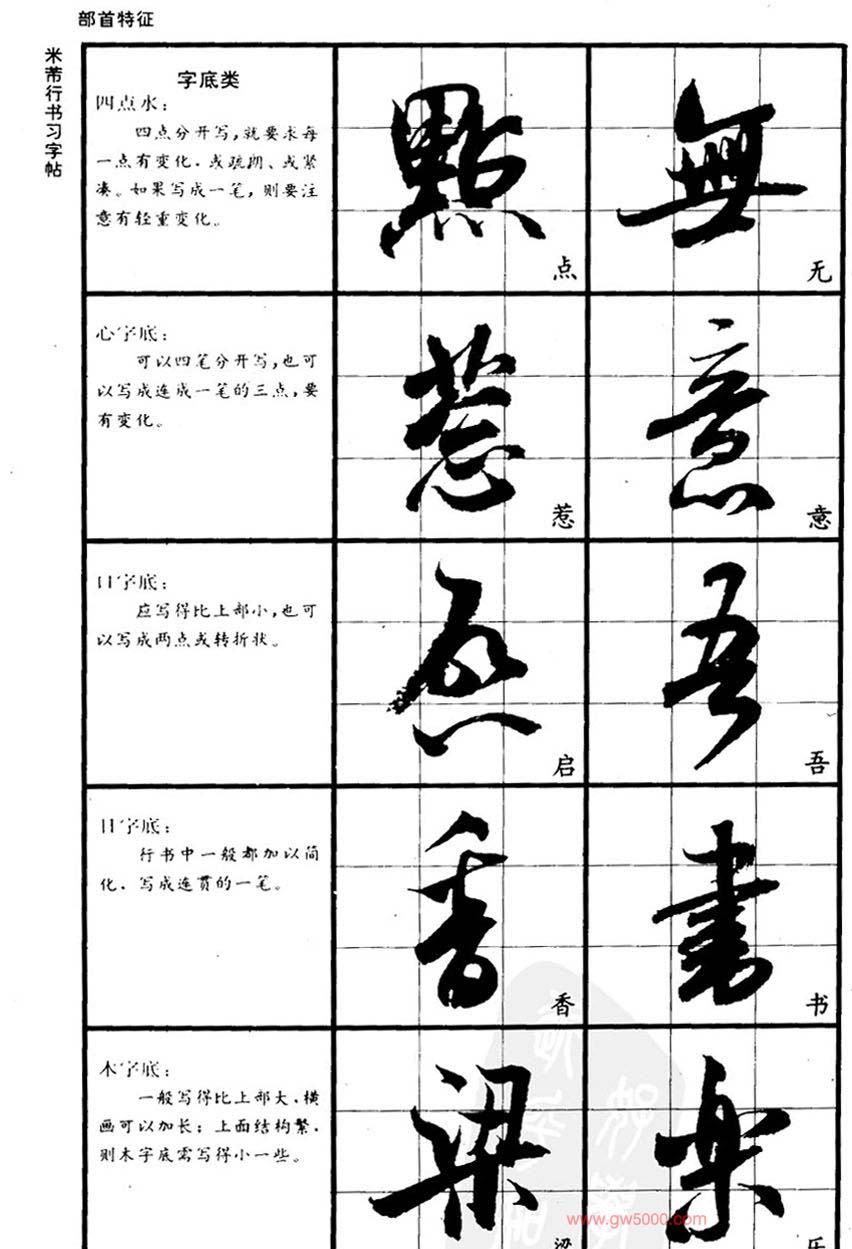 部首特征
米芾行书习字帖
字底类
四点水：
四点分开写，就要求每
一点有变化．或疏朗、或紧
凑。如果写成一笔，则要注
意有轻重变化。
點
点
無
无
心字底：
可以四笔分开写，也可
以写成连成一笔的三点，要
有变化。
惹
惹
意
意
口字底：
应写得比上部小，也可
以写成两点或转折状。
启
吾
吾
日字底：
行书中一般都加以简
化．写成连贯的一笔。
香
香
書
书
木字底：
一般写得比上部大．横
画可以加长；上面结构繁．
则木字底需写得小一些。
梁
梁
乐
www.gw5000.com